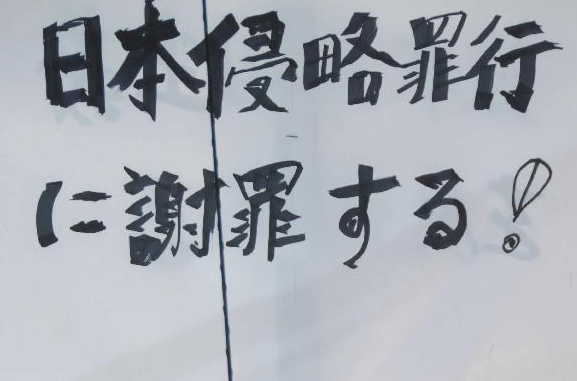 日本侵略罪行
に謝罪する!